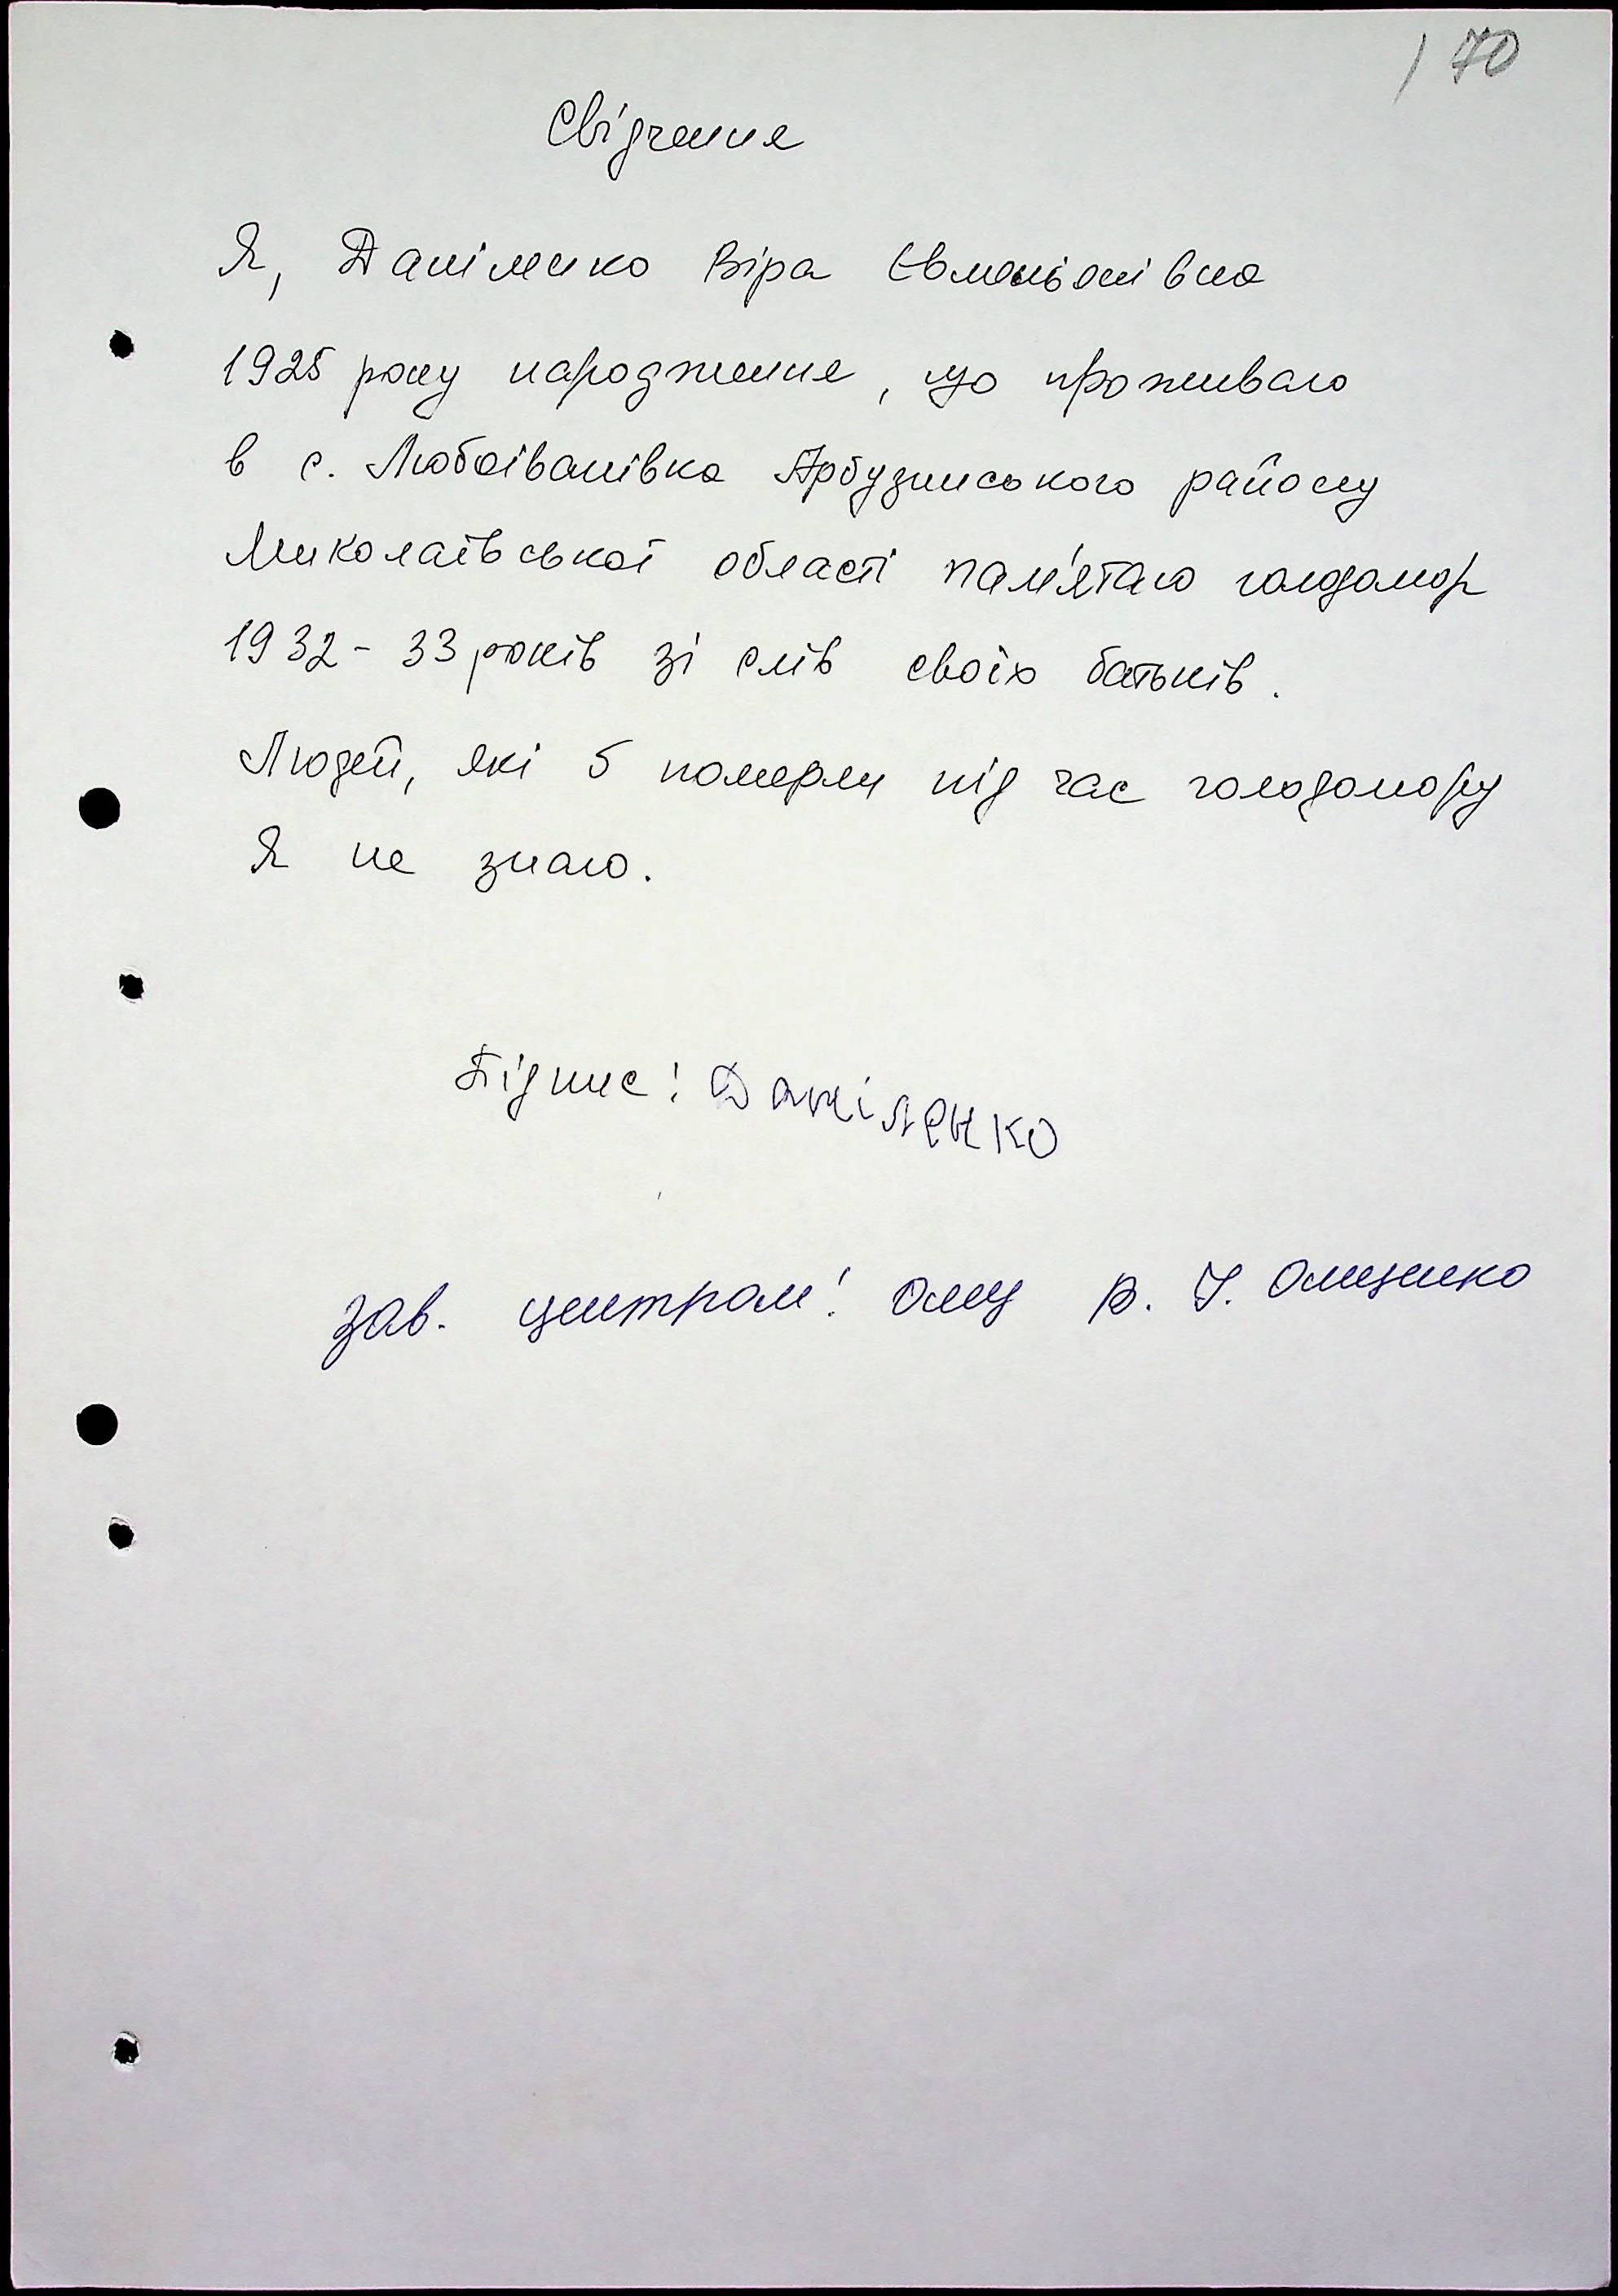 170
Свідчення
Я, Даніленко Віра Євменьонівна
1925 року народження, що проживаю
в с. Любоіванівка Арбузинського району
Миколаївської області пам'ятаю голодомор
1932-33 років зі слів своїх батьків.
Людей, які б померли під час голодомору
Я не знаю.
Підпис: Даніленко
Зав. центром: В. І. Онищенко